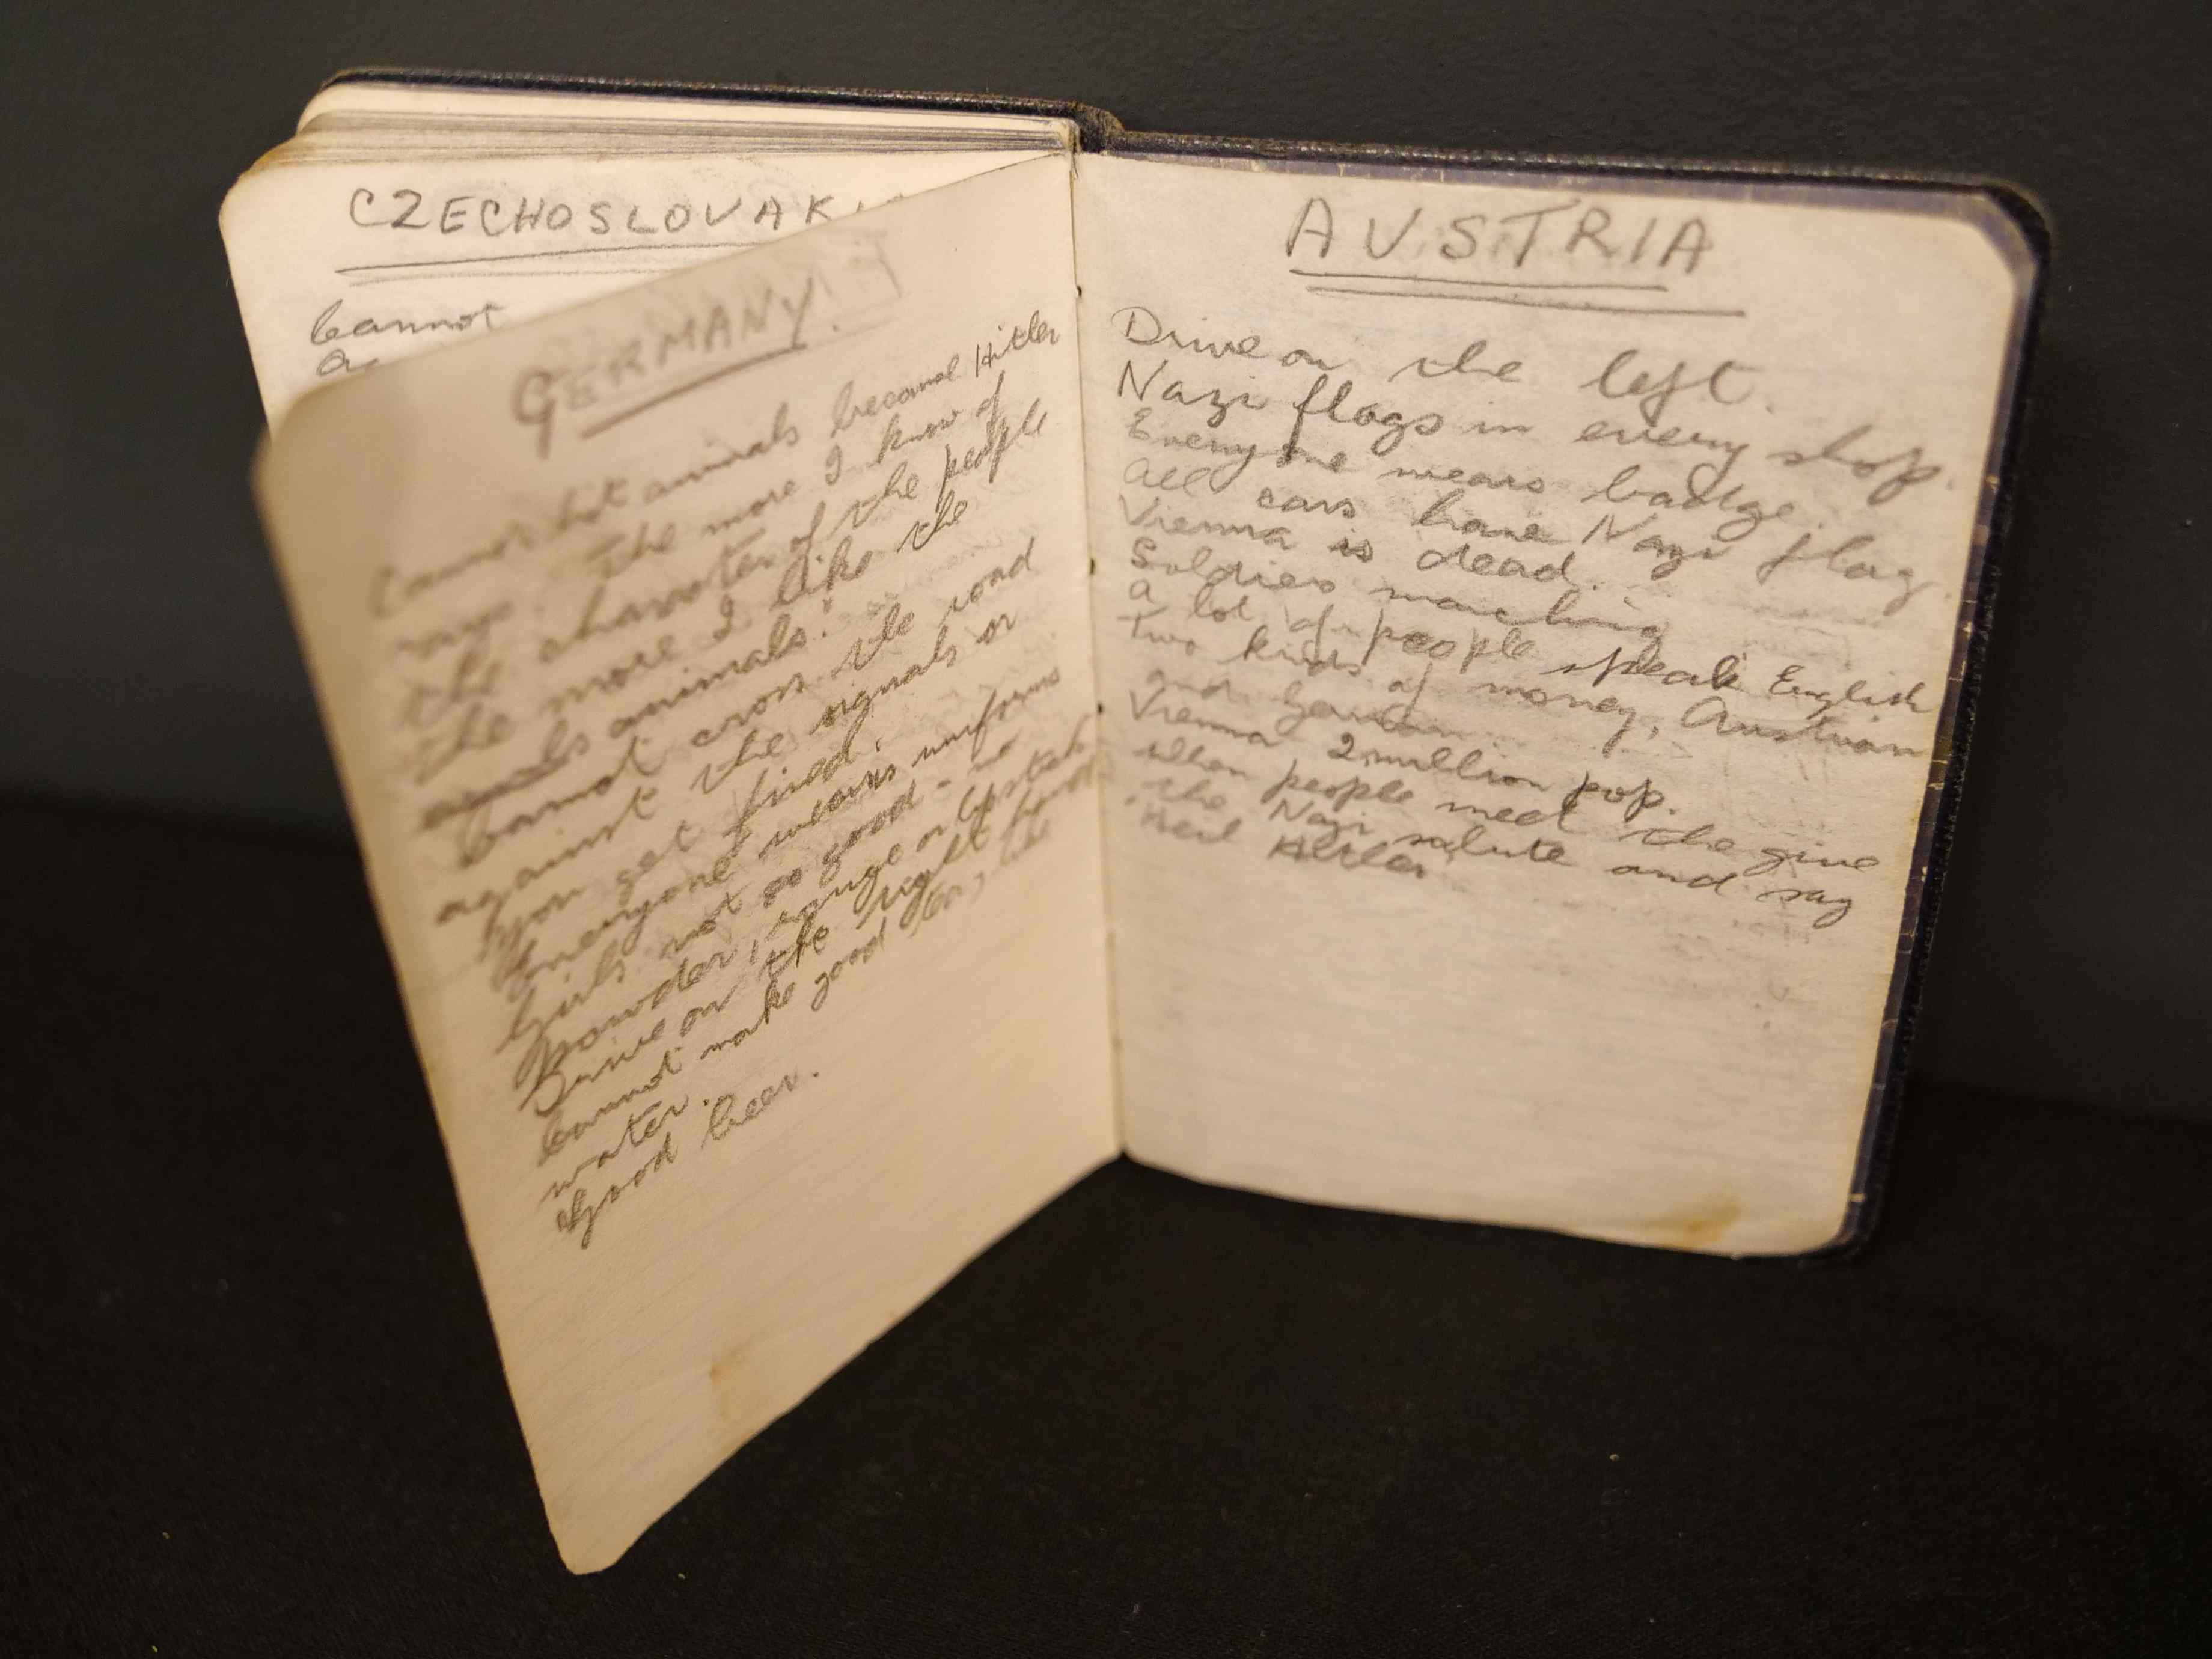 CZECHOSLOVAK
Cannot
GERMANY.
Cannot hit animals because Hitler
says "The more I know of
the character of the people
the more I like the
animals."
Cannot cross the road
against the signals or
you get fined.
Everyone wears uniforms
Girls not so good - no
powder, rouge or lipstick
Drive on the right
Cannot make good tea, the
water.
Good beer.
AUSTRIA
Drive on the left.
Nazi flags in every shop.
Everyone wears badge.
All cars have Nazi flag.
Vienna is dead.
Soldiers marching
A lot of people speak English
Two kinds of money, Austrian
and German
Vienna 2 million pop.
When people meet the give
the Nazi salute and say
"Heil Hitler"